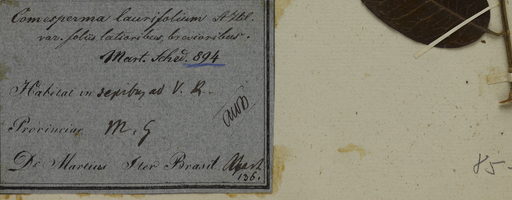 Comesperma laurifolium St Hil.
var. foliis latioribus, brevioribus.
Mart. Sched. 894
Habitat in sepibus ad V. R.
Provinciae M. G
Dr Martius Iter Brasil.
136.
85-